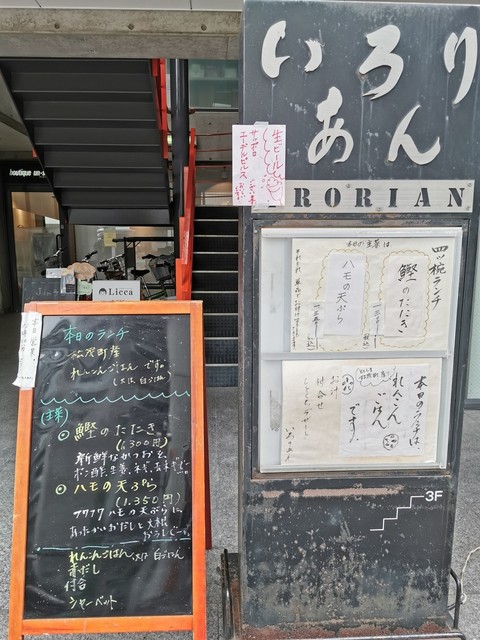 いろり
あん
IRORIAN
生ビール
サッポロ
エーデルピルス
boutique un-
Licca
本日の主菜は
四ツ椀ランチ
鰹のたたき
ハモの天ぷら
本日のランチは、
れんこん
ごはん
です。
3F
本日のランチ
松茂町産
れんこんごはん です。
(又は 白ごはん)
(主菜)
◎ 鰹のたたき
(1,300円)
新鮮なかつおを、
ポン酢、生姜、ネギ、
◎ ハモの天ぷら
(1,350円)
フワフワ ハモの天ぷらに
あったかいおだしと大根
おろしで…
れんこんごはん 又は 白ごはん
赤だし
付合
シャーベット